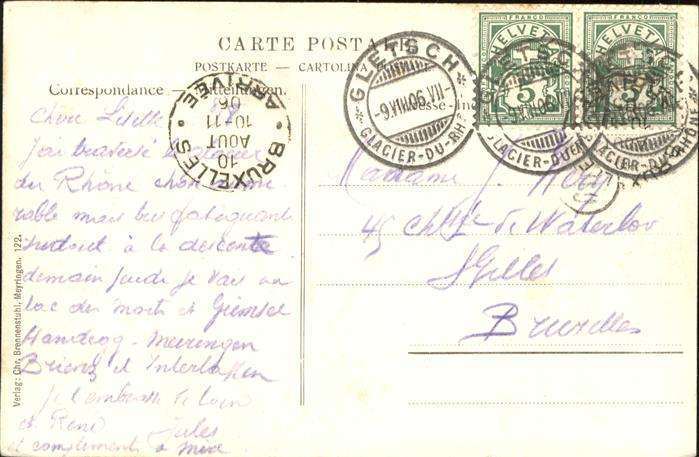 CARTE POSTALE
POSTKARTE — CARTOLINA
Correspondance — Mitteilungen.
Chère Lisette
J'ai traversé le glacier
du Rhône
mais très fatiguant
surtout à la descente
demain jeudi je vais au
lac des morts et Grimsel
Handegg - Meiringen
Brienz et Interlaken
Je t'embrasse de loin
et René Jules
et compliments à
Verlag: Chr. Brennenstuhl, Meyringen. 122.
BRUXELLES
10 AOUT
10-11
06
ARRIVÉE
GLETSCH
9.VIII.06
GLACIER-DU-RH
HELVETIA
FRANCO
5
HELVETIA
FRANCO
5
GLETSCH
GLACIER-DU-RH
Madame J.
45 Chée de Waterloo
St Gilles
Bruxelles